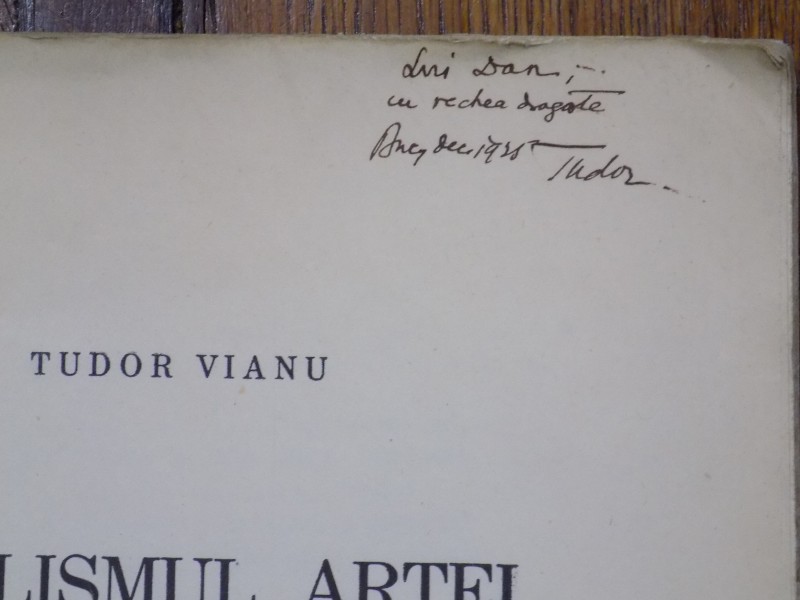 Lui Dan,
cu vechea dragoste
Buc, dec. 1925
Tudor
TUDOR VIANU
LISMUL ARTEI